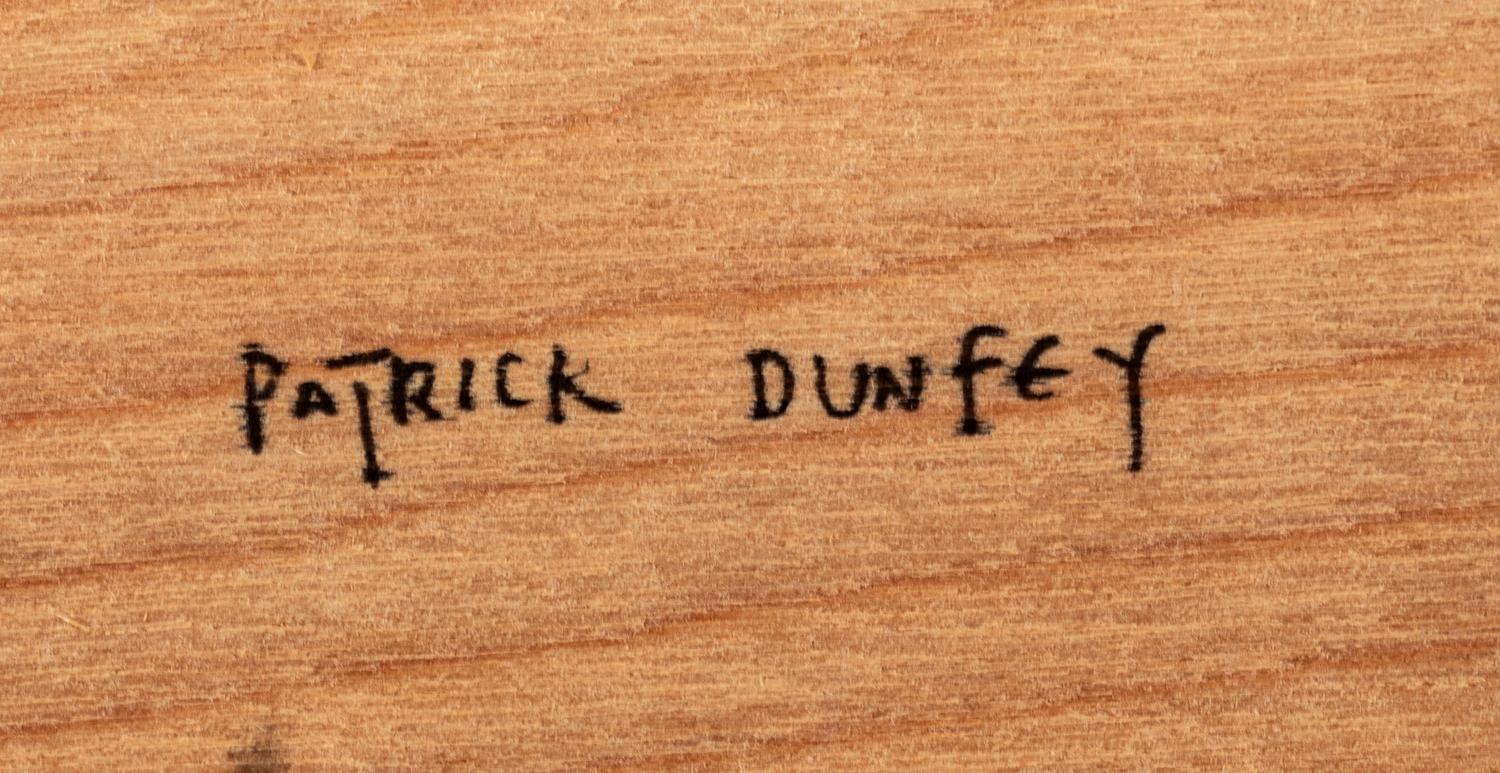 PATRICK DUNFEY